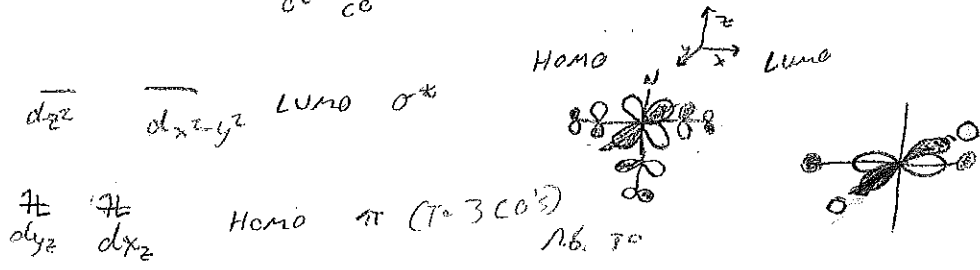 co
HOMO
z
y
x
LUMO
N
dz² dx²-y² LUMO σ*
dyz dxz HOMO π (To 3 CO's)